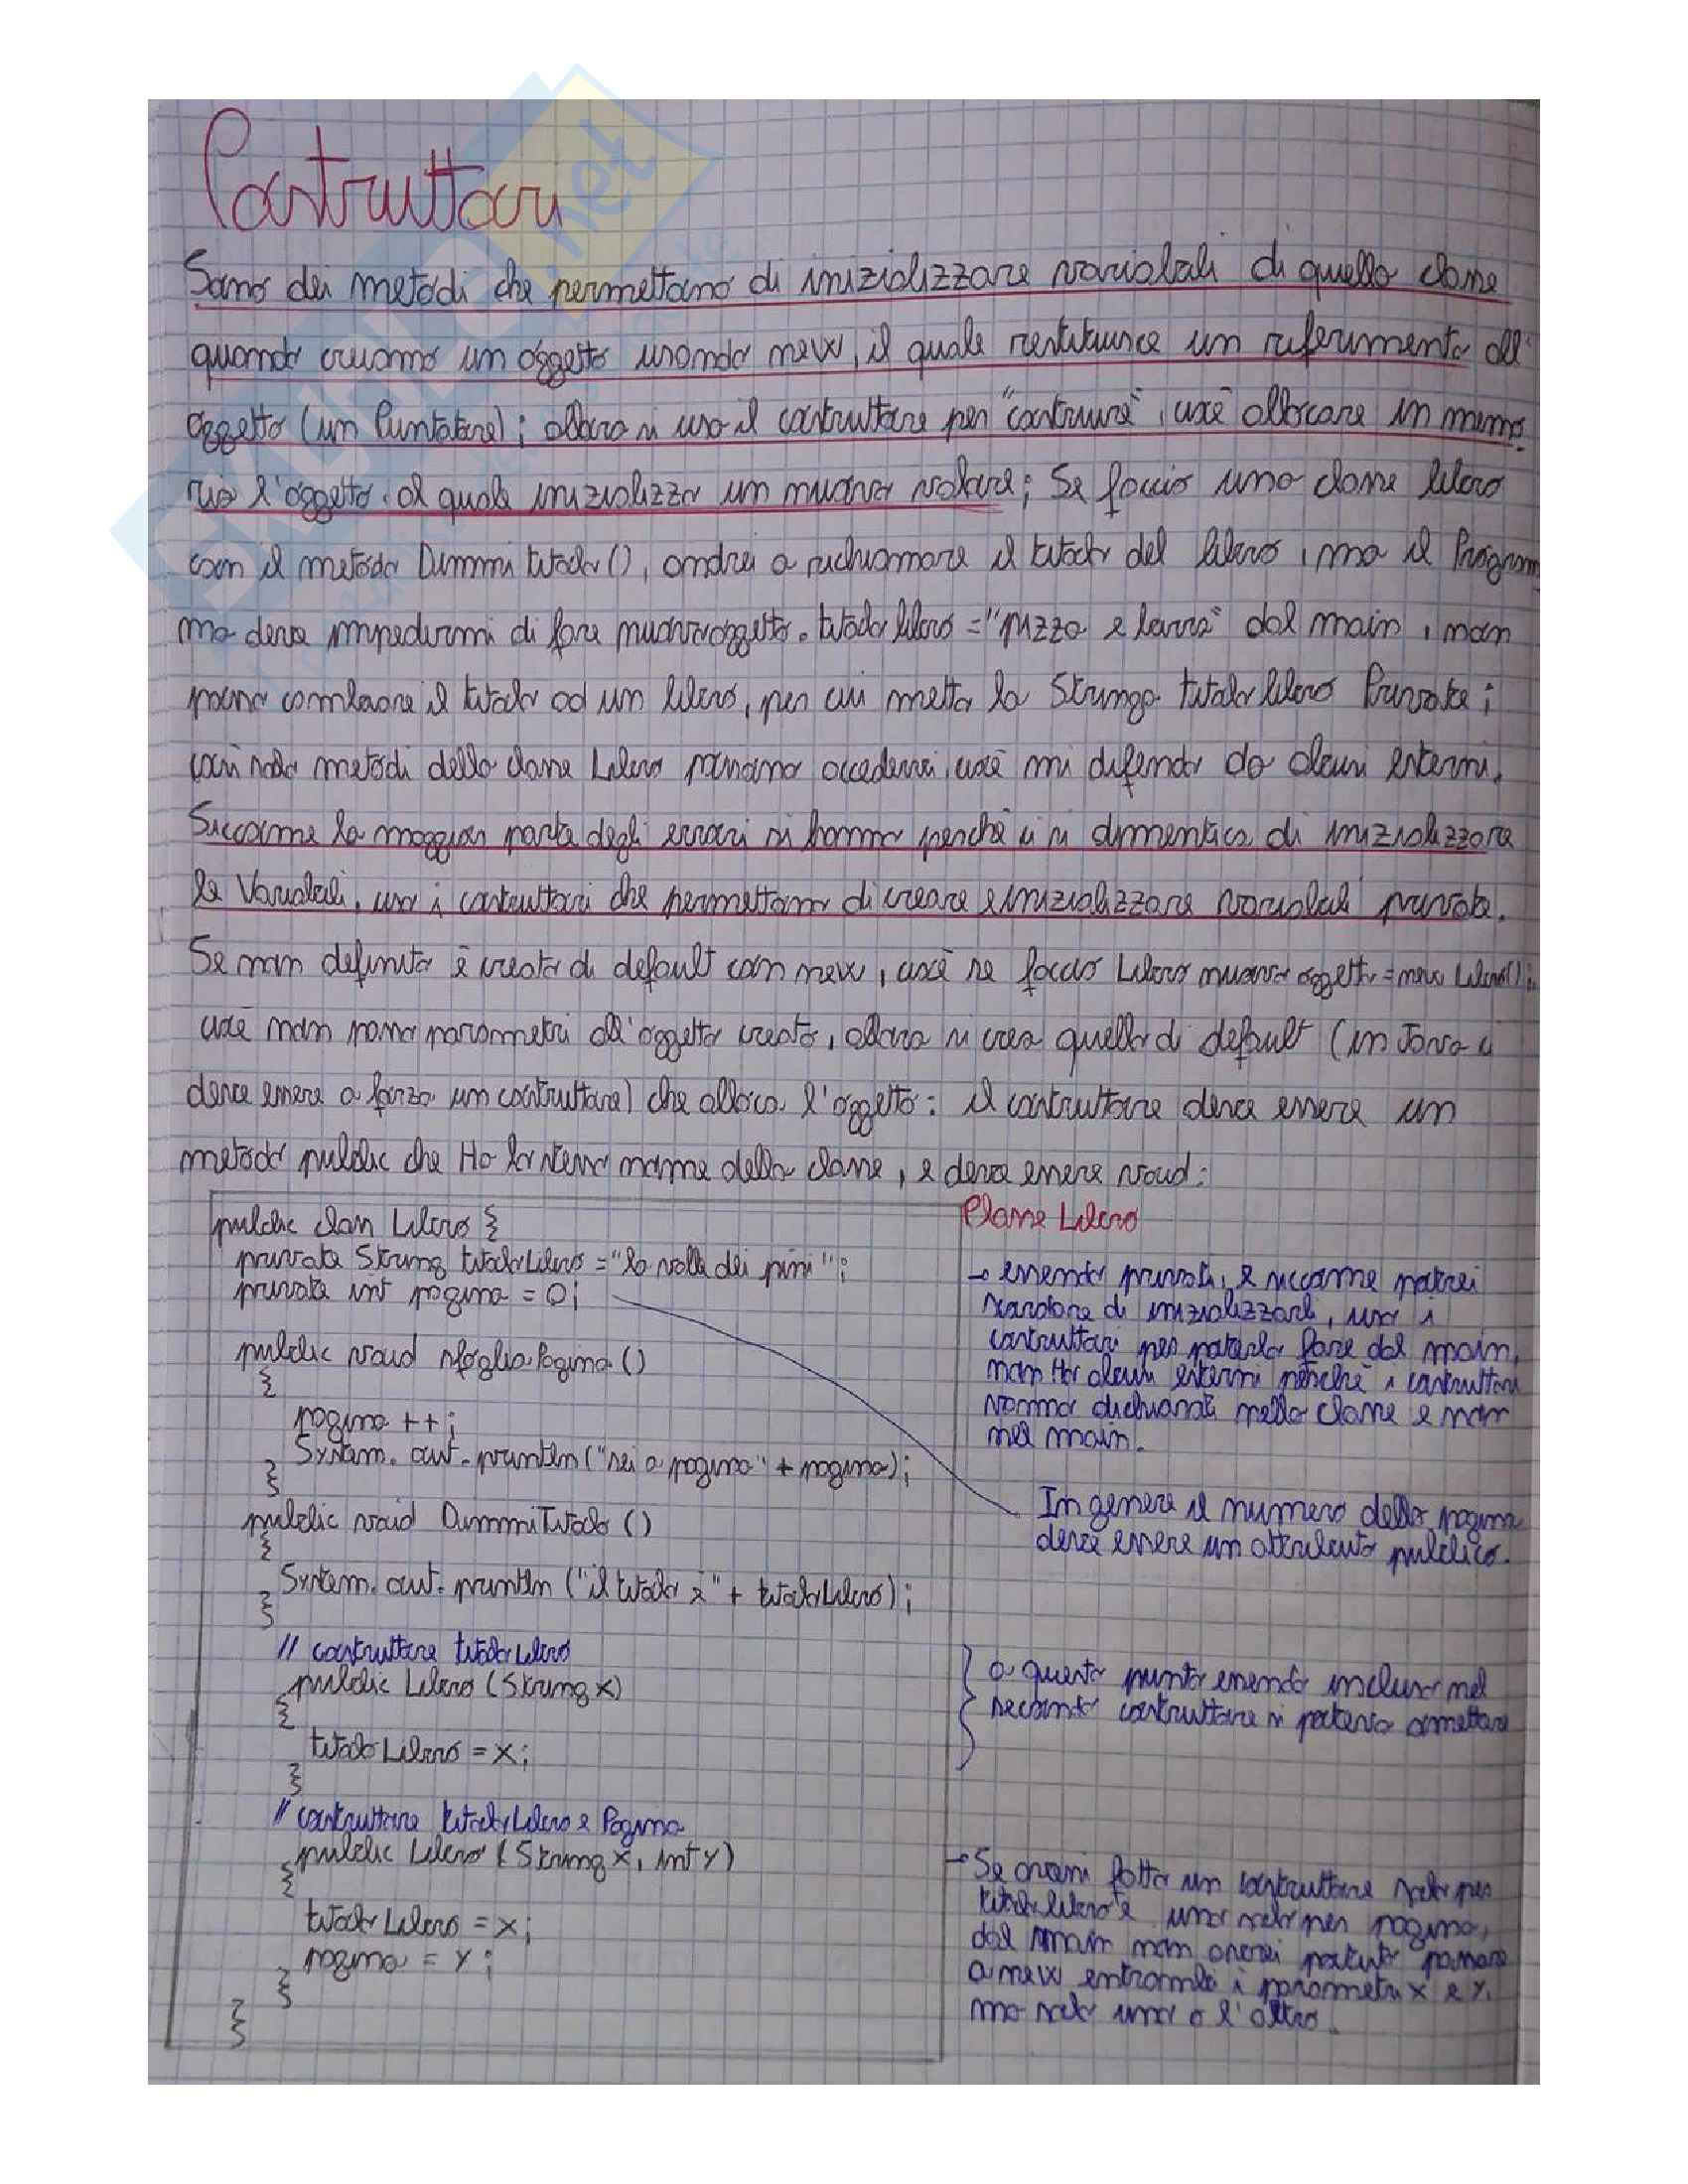 Costruttori
Sono dei metodi che permettono di inizializzare variabili di quella classe
quando creiamo un oggetto usando new, il quale restituisce un riferimento all'
oggetto (un Puntatore); allora si usa il costruttore per "costruire", cioè allocare in memo
ria l'oggetto. al quale inizializza un nuovo valore; Se faccio una classe libro
con il metodo DimmiTitolo(), andrei a richiamare il titolo del libro, ma il Program
ma deve impedirmi di fare nuovooggetto.titololibro="pizza e birra" dal main, non
posso cambiare il titolo ad un libro, per cui metto la Stringa titololibro Private;
così solo metodi della classe Libro possono accedervi, cioè mi difendo da alcuni esterni.
Siccome la maggior parte degli errori si hanno perchè ci si dimentica di inizializzare
le Variabili, uso i costruttori che permettono di creare e inizializzare variabili private.
Se non definito è creato di default con new, cioè se faccio Libro nuovo oggetto = new Libro();
cioè non passo parametri all'oggetto creato, allora si crea quello di default (in Java ci
deve essere a forza un costruttore) che alloca l'oggetto: il costruttore deve essere un
metodo public che Ha lo stesso nome della classe, e deve essere void:
public class Libro {
private String titoloLibro = "la valle dei pini";
private int pagina = 0;
public void sfogliaPagina ()
{
pagina ++;
System.out.println("sei a pagina" + pagina);
}
public void DimmiTitolo ()
{
System.out.println ("il titolo è" + titoloLibro);
}
// costruttore titoloLibro
public Libro (String x)
{
titoloLibro = x;
}
// costruttore titoloLibro e Pagina
public Libro (String x, int y)
{
titoloLibro = x;
pagina = y;
}
}
Classe Libro
→ essendo privati, e siccome potrei
scordare di inizializzarli, uso i
costruttori per poterlo fare dal main,
non Ho alcuni esterni perchè i costruttori
vanno dichiarati nella classe e non
nel main.
In genere il numero della pagina
deve essere un attributo pubblico.
a questo punto essendo incluso nel
secondo costruttore si poteva omettere
→ Se avessi fatto un costruttore solo per
titololibro e uno solo per pagina,
dal main non avrei potuto passare
a new entrambi i parametri x e y,
ma solo uno o l'altro.